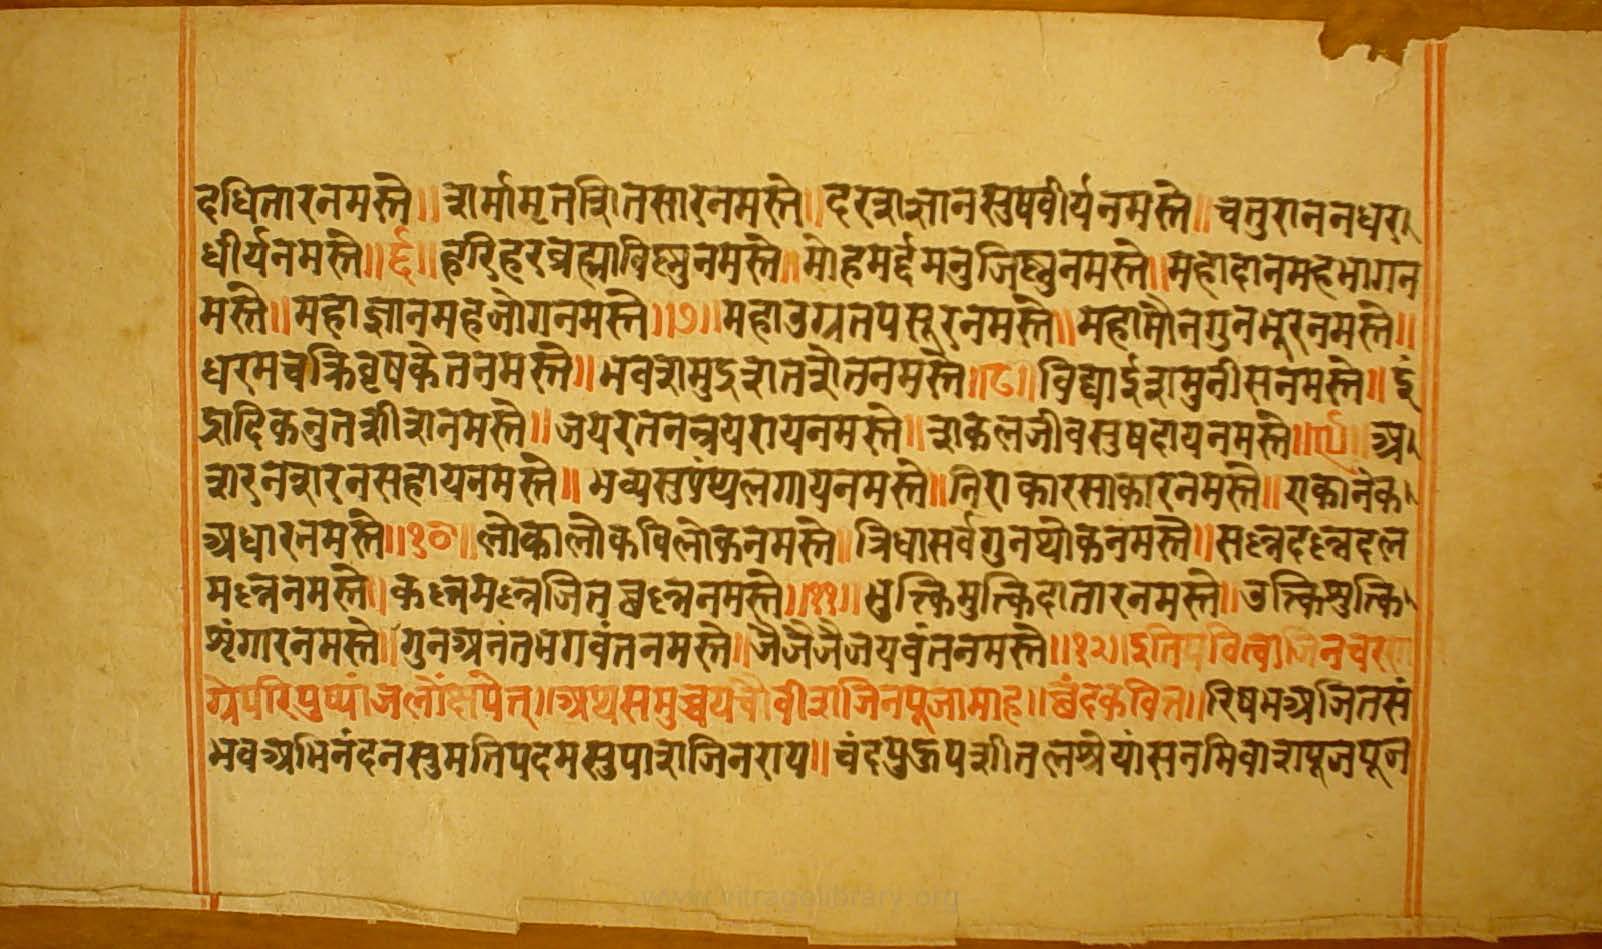 दधितारनमस्ते॥ शर्मामृतशितसारनमस्ते॥ दरशज्ञानसुषवीर्यनमस्ते॥ चतुराननधरा
धीर्यनमस्ते॥६॥ हरिहरब्रह्माविष्णुनमस्ते॥ मोहमर्द्दमनुजिष्णुनमस्ते॥ महादानमहभागन
मस्ते॥ महाज्ञानमहजोगनमस्ते॥७॥ महाउग्रतपसूरनमस्ते॥ महामौनगुनभूरनमस्ते॥
धरमचक्रिवृषकेतनमस्ते॥ भवशमुद्रशतशेतनमस्ते॥८॥ विद्याईशमुनीसनमस्ते॥ इं
द्रादिकनुतशीशनमस्ते॥ जयरतनत्रयरायनमस्ते॥ शकलजीवसुषदायनमस्ते॥९॥ अ
शरनशरनसहायनमस्ते॥ भव्यसुपंथलगायनमस्ते॥ निराकारसाकारनमस्ते॥ एकानेक
अधारनमस्ते॥१०॥ लोकालोकविलोकनमस्ते॥ त्रिधासर्वगुनथोकनमस्ते॥ सल्लदल्लदल
मल्लनमस्ते॥ कल्लमल्लजितछल्लनमस्ते॥११॥ भुक्तिमुक्तिदातारनमस्ते॥ उक्तिश्रुक्ति
शृंगारनमस्ते॥ गुनअनंतभगवंतनमस्ते॥ जैजैजैजयवंतनमस्ते॥१२॥ इतिपवित्वाजिनचरणा
ग्रेपरिपुष्पांजलींक्षपेत्॥ अथसमुच्चयचौवीशजिनपूजामाह॥ छंदकवित्त॥ रिषभअजितसं
भवअभिनंदनसुमतिपदमसुपाराजिनराय॥ चंदपुहुपशीतलश्रेयांसनमिवाशपूजपूज
www.vitragelibrary.org